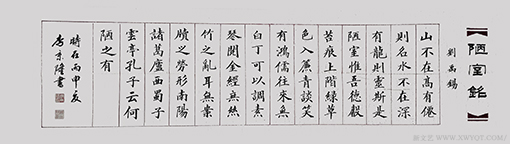 【陋室銘】
劉禹錫
山不在高有僊
則名水不在深
有龍則靈斯是
陋室惟吾德馨
苔痕上階綠草
色入簾青談笑
有鴻儒往來無
白丁可以調素
琴閱金經無絲
竹之亂耳無案
牘之勞形南陽
諸葛廬西蜀子
雲亭孔子云何
陋之有
時在丙申夏
李京隆書